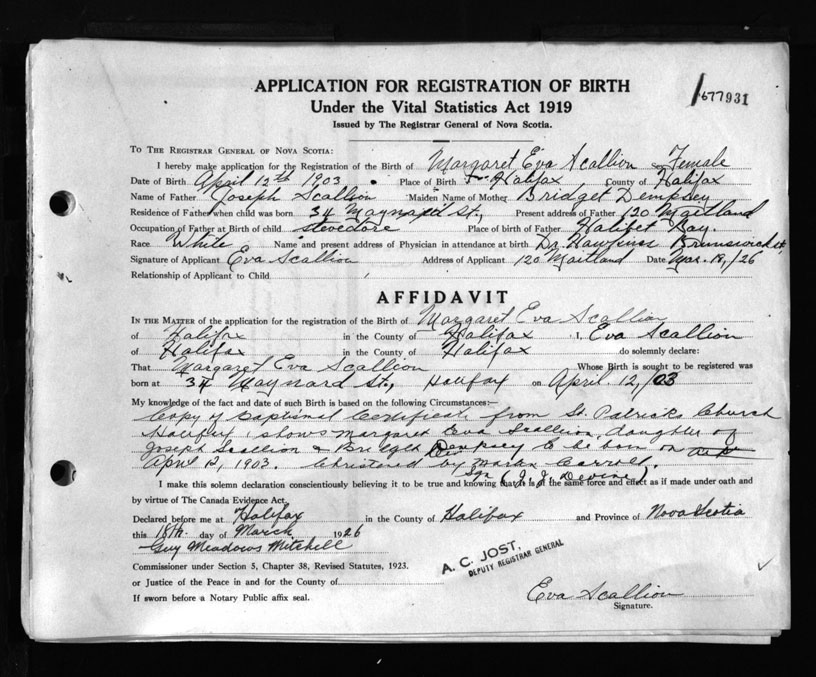 APPLICATION FOR REGISTRATION OF BIRTH
Under the Vital Statistics Act 1919
Issued by The Registrar General of Nova Scotia.
677931
To The Registrar General of Nova Scotia:
I hereby make application for the Registration of the Birth of Margaret Eva Scallion Female
Date of Birth April 12th 1903 Place of Birth Halifax County of Halifax
Name of Father Joseph Scallion Maiden Name of Mother Bridget Dempsey
Residence of Father when child was born 34 Maynard St., Present address of Father 120 Maitland
Occupation of Father at Birth of child stevedore Place of birth of Father Halifax
Race White Name and present address of Physician in attendance at birth Dr. Brunswick St.
Signature of Applicant Eva Scallion Address of Applicant 120 Maitland Date Mar. 18,/26
Relationship of Applicant to Child
AFFIDAVIT
In the Matter of the application for the registration of the Birth of Margaret Eva Scallion
of Halifax in the County of Halifax I, Eva Scallion
of Halifax in the County of Halifax do solemnly declare:
That Margaret Eva Scallion Whose Birth is sought to be registered was
born at 34 Maynard St., Halifax on April. 12,/03
My knowledge of the fact and date of such Birth is based on the following Circumstances:—
Copy of Baptismal Certificate from St. Patricks Church
Halifax, shows Margaret Eva Scallion, daughter of
Joseph Scallion & Bridget Dempsey to be born on
April 12, 1903. Christened by
Sgn (J. J. Devine)
I make this solemn declaration conscientiously believing it to be true and knowing that it is of the same force and effect as if made under oath and
by virtue of The Canada Evidence Act.
Declared before me at Halifax in the County of Halifax and Province of Nova Scotia
this 18th. day of March 1926
Guy Meadows Mitchell
Commissioner under Section 5, Chapter 38, Revised Statutes, 1923.
or Justice of the Peace in and for the County of
If sworn before a Notary Public affix seal.
A. C. JOST,
DEPUTY REGISTRAR GENERAL
Eva Scallion
Signature.